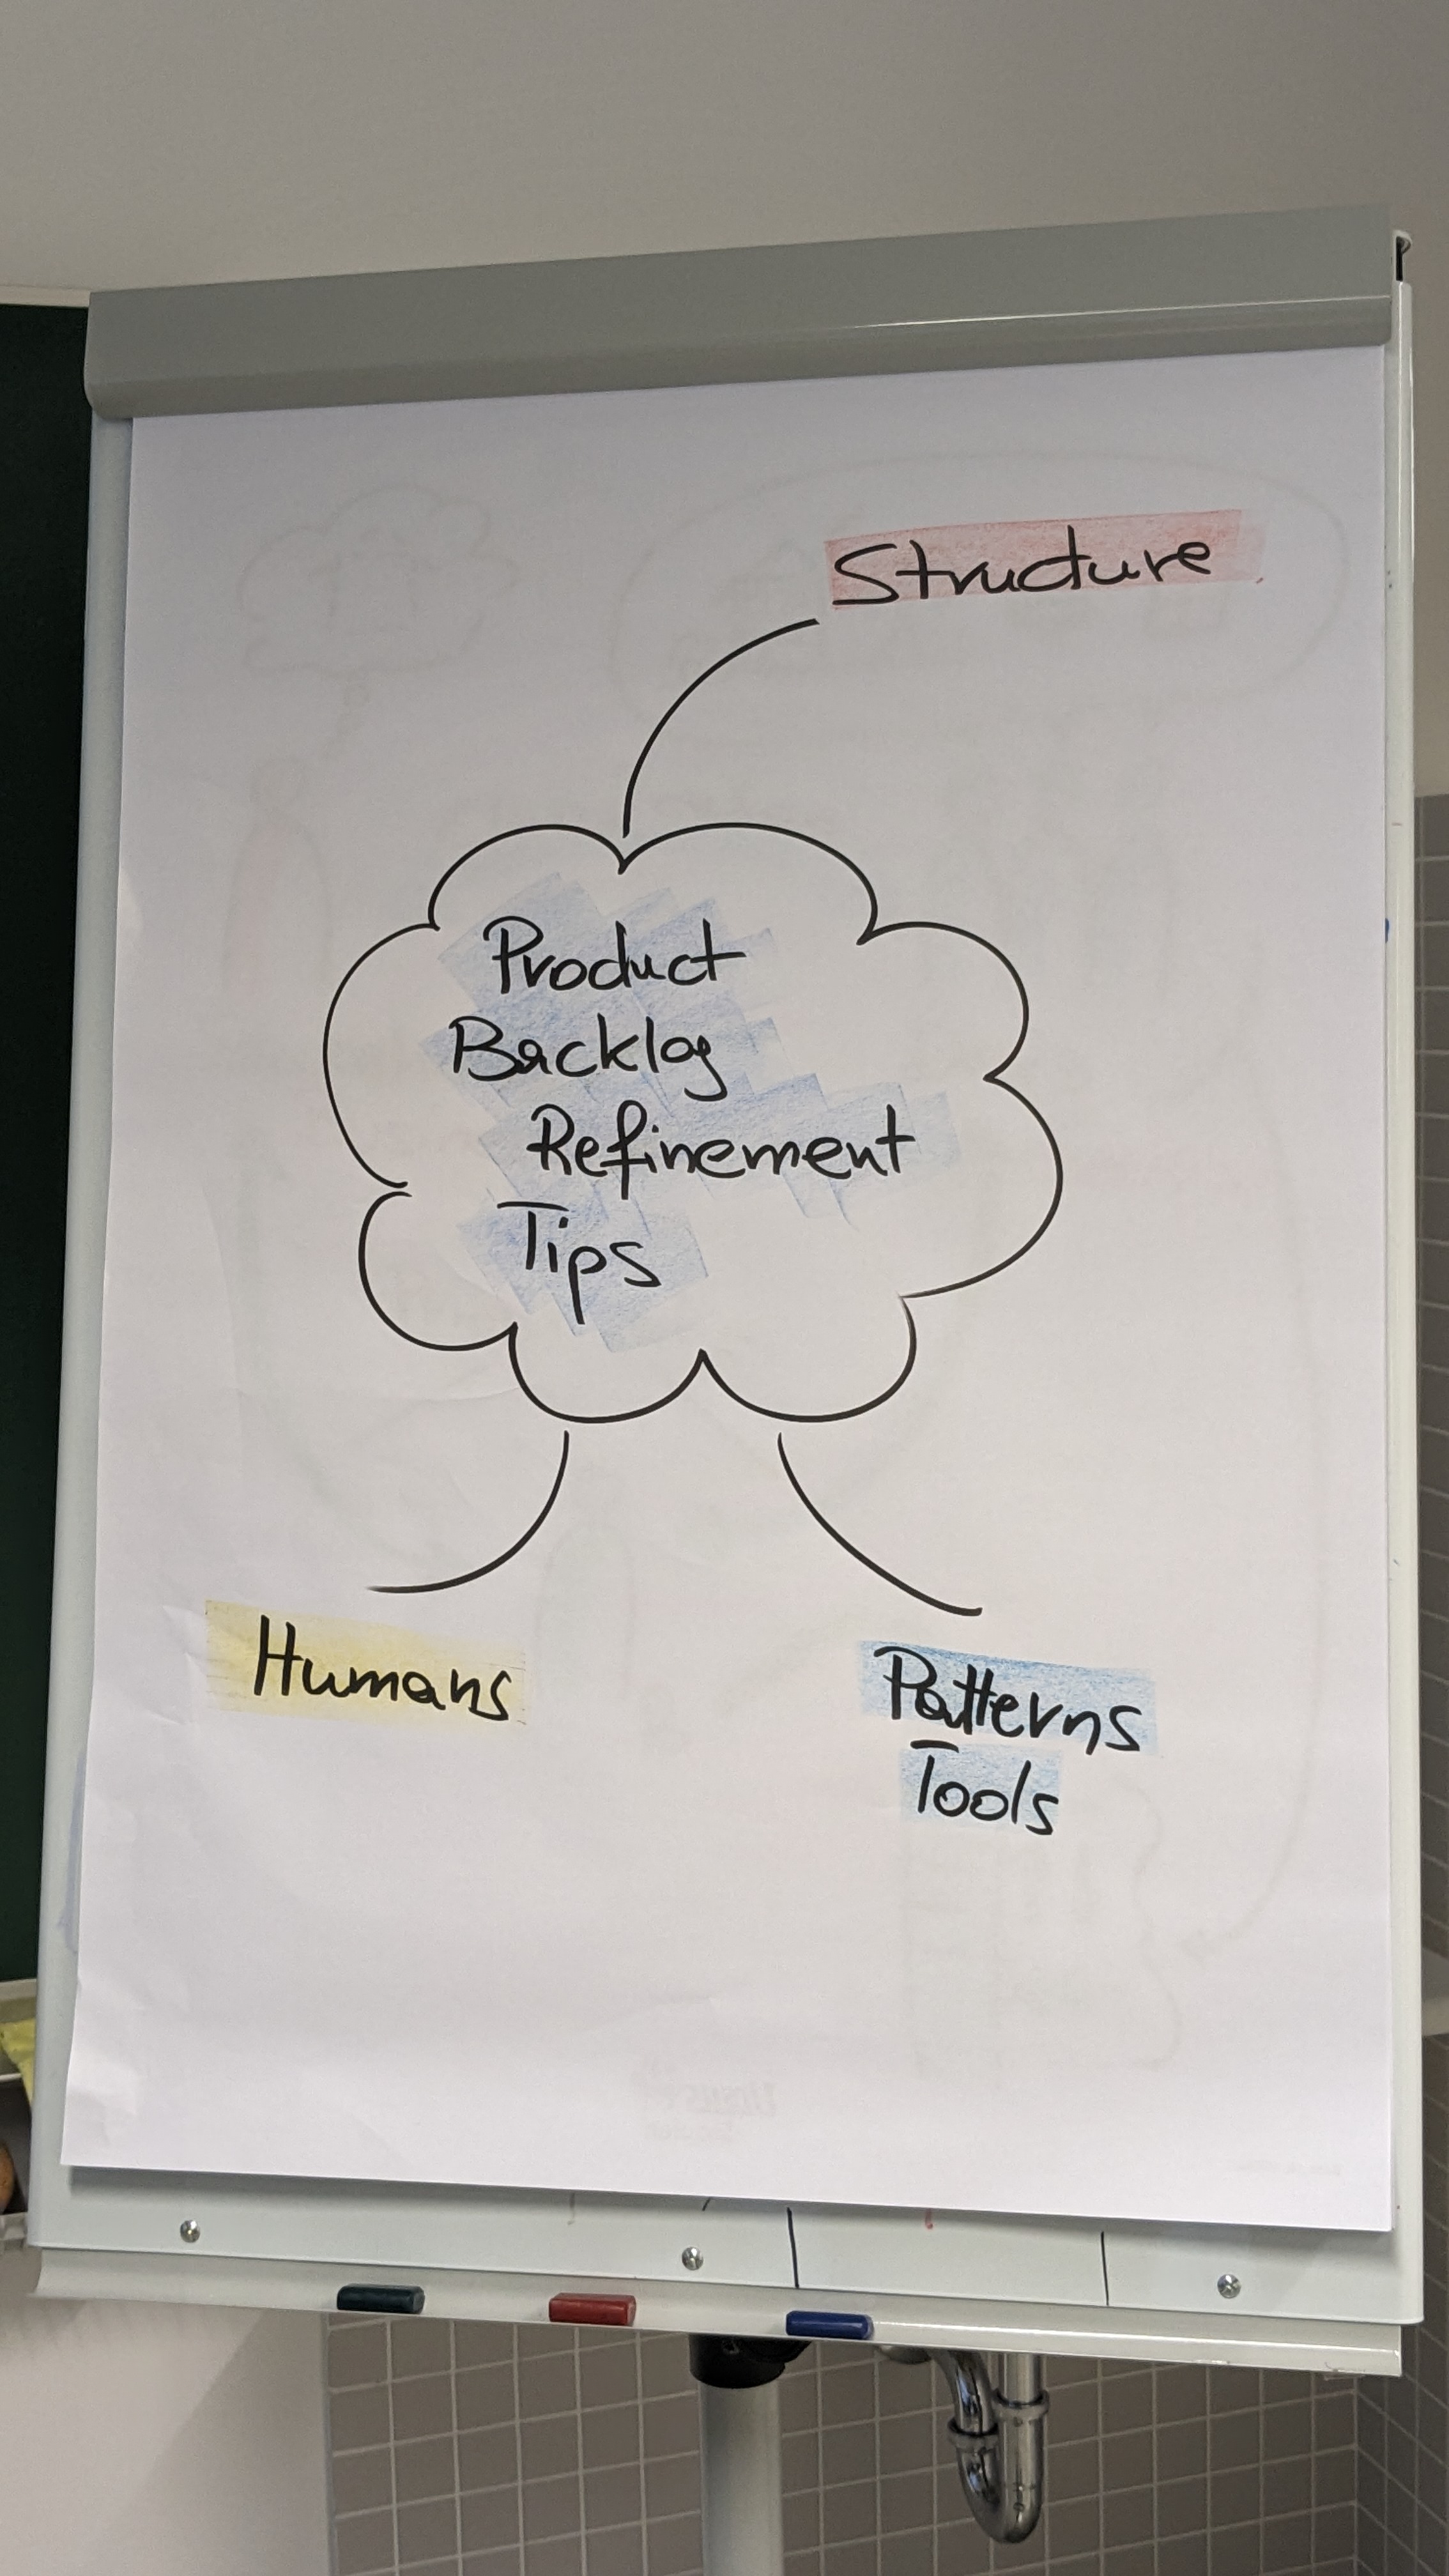 Structure
Product
Backlog
Refinement
Tips
Humans
Patterns
Tools